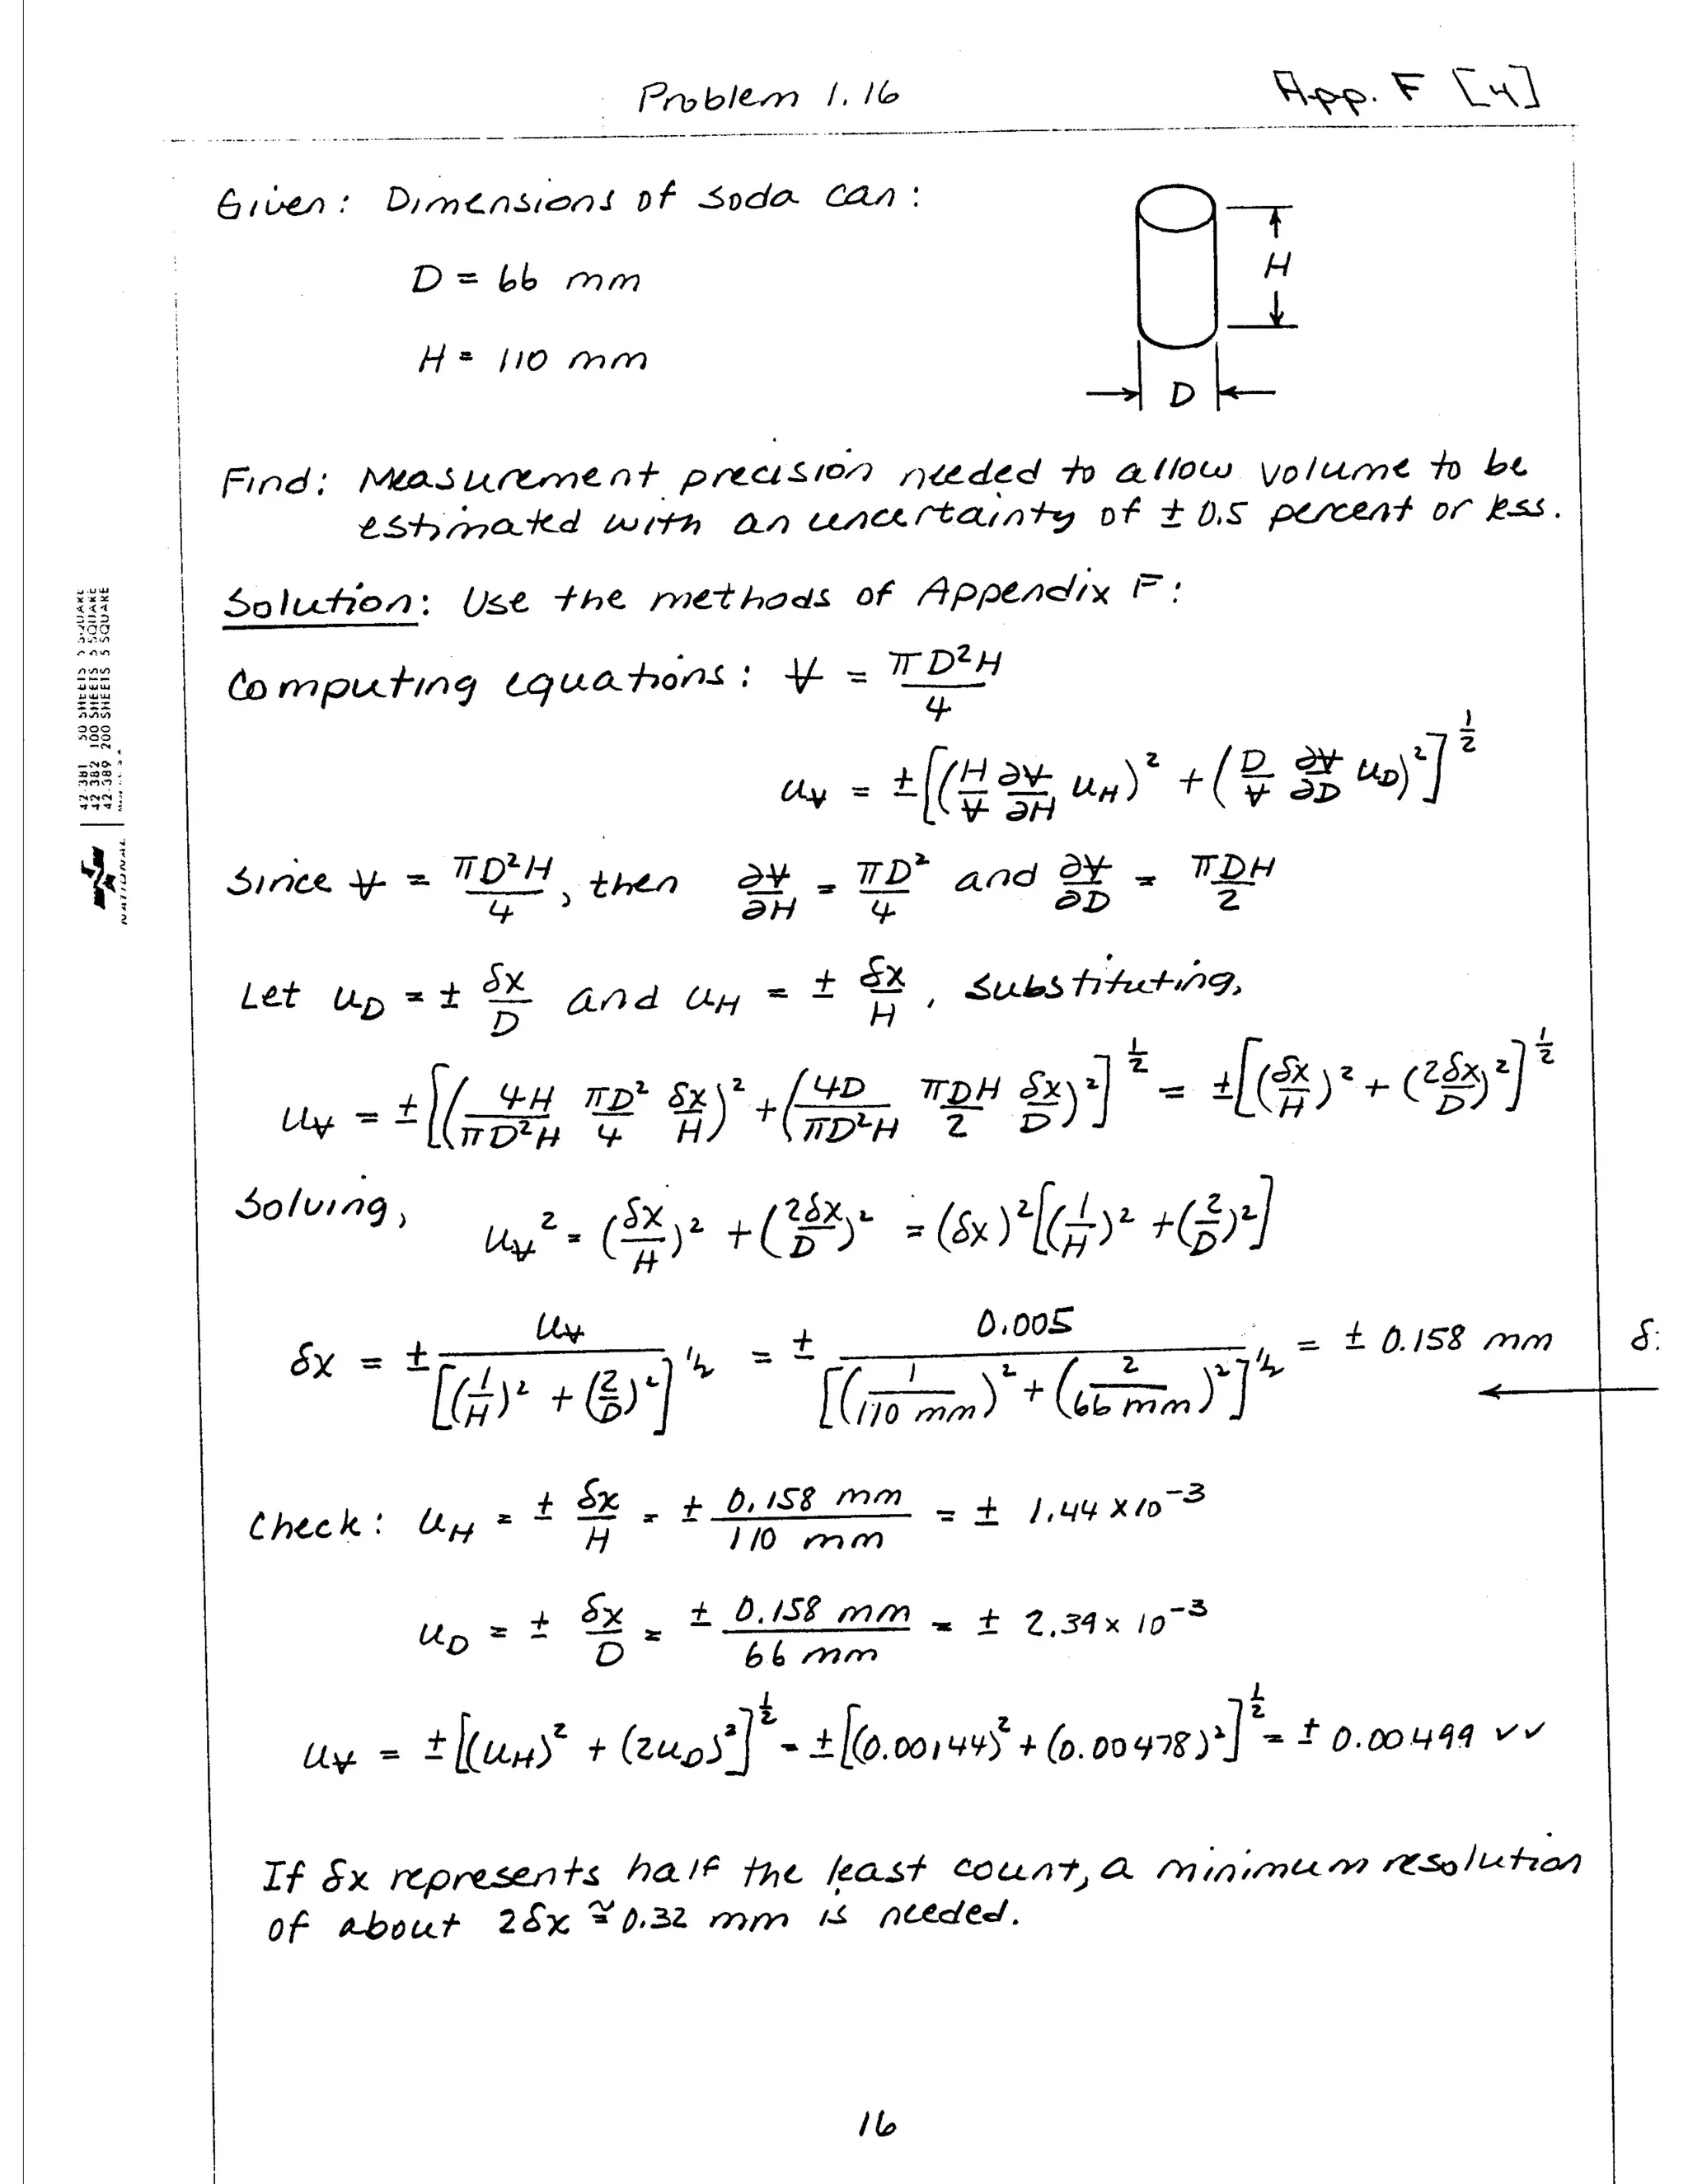 Problem 1.16
App. F [4]
Given: Dimensions of soda can:
D = 66 mm
H = 110 mm
H
D
Find: Measurement precision needed to allow volume to be
estimated with an uncertainty of ± 0.5 percent or less.
Solution: Use the methods of Appendix F:
Computing equations: V̶ = πD²H/4
u_V̶ = ±[(H/V̶ ∂V̶/∂H u_H)² + (D/V̶ ∂V̶/∂D u_D)²]^½
Since V̶ = πD²H/4, then ∂V̶/∂H = πD²/4 and ∂V̶/∂D = πDH/2
Let u_D = ± δx/D and u_H = ± δx/H, substituting,
u_V̶ = ±[(4H/πD²H πD²/4 δx/H)² + (4D/πD²H πDH/2 δx/D)²]^½ = ±[(δx/H)² + (2δx/D)²]^½
Solving, u_V̶² = (δx/H)² + (2δx/D)² = (δx)²[(1/H)² + (2/D)²]
δx = ± u_V̶/[(1/H)² + (2/D)²]^½ = ± 0.005/[(1/110 mm)² + (2/66 mm)²]^½ = ± 0.158 mm δ:
Check: u_H = ± δx/H = ± 0.158 mm/110 mm = ± 1.44 x 10⁻³
u_D = ± δx/D = ± 0.158 mm/66 mm = ± 2.39 x 10⁻³
u_V̶ = ±[(u_H)² + (2u_D)²]^½ = ±[(0.00144)² + (0.00478)²]^½ = ± 0.00499 ✓✓
If δx represents half the least count, a minimum resolution
of about 2δx ≅ 0.32 mm is needed.
16
42 381 50 SHEETS 5 SQUARE
42 382 100 SHEETS 5 SQUARE
42 389 200 SHEETS 5 SQUARE
NATIONAL